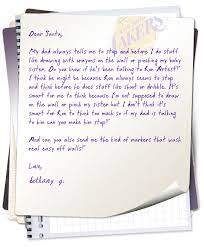 Dear Santa,
My dad always tells me to stop and before I do stuff
like drawing with crayons on the wall or pinching my baby
sister. Do you know if he's been talking to Ron Artest?
I think he might be because Ron always seems to stop
and think before he does stuff like shoot or dribble. It's
smart for me to think because I'm not supposed to draw
on the wall or pinch my sister but I don't think it's
smart for Ron to think too much so if my dad is talking
to him can you make him stop?
And can you also send me the kind of markers that wash real
easy off walls?
Love,
bethany g.